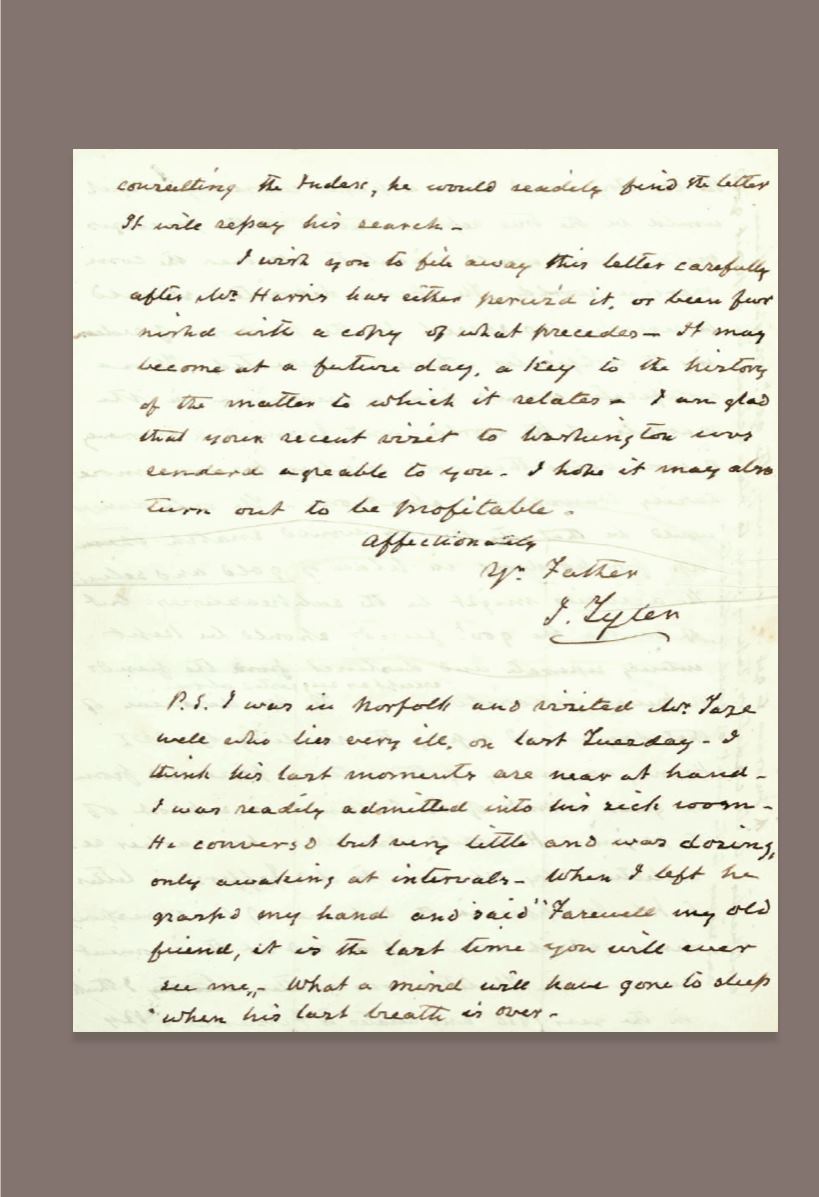 consulting the Index, he would readily find the letter
It will repay his search -
I wish you to file away this letter carefully
after Mr Harris has either perus'd it, or been fur
nishd with a copy of what precedes - It may
become at a future day, a key to the history
of the matter to which it relates - I am glad
that your recent visit to Washington was
renderd agreable to you - I hope it may also
turn out to be profitable -
Affectionately
Yr Father
J. Tyler
P.S. I was in Norfolk and visited Mr Taze
well who lies very ill, on last Tuesday - I
think his last moments are near at hand -
I was readily admitted into his sick room -
He convers'd but very little and was dozing,
only awaking at intervals - When I left he
grasp'd my hand and said "Farewell my old
friend, it is the last time you will ever
see me," - What a mind will have gone to sleep
when his last breath is over -